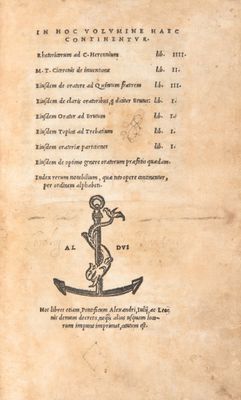 IN HOC VOLVMINE HAEC
CONTINENTVR.
Rhetoricorum ad C. Herennium lib. IIII.
M. T. Ciceronis de inuentione lib. II.
Eiusdem de oratore ad Quintum fratrem lib. III.
Eiusdem de claris oratoribus, q̃ dicitur Brutus: lib. I.
Eiusdem Orator ad Brutum lib. I.
Eiusdem Topica ad Trebatium lib. I.
Eiusdem oratoriæ partitiones lib. I.
Eiusdem de optimo genere oratorum præfatio quædam.
Index rerum notabilium, quæ toto opere continentur,
per ordinem alphabeti.
AL DVS
Hos libros etiam, Pontificum Alexandri, Iulij, ac Leo⸗
nis demum decreto, nequis alius usquam loco⸗
rum impune imprimat, cautum est.